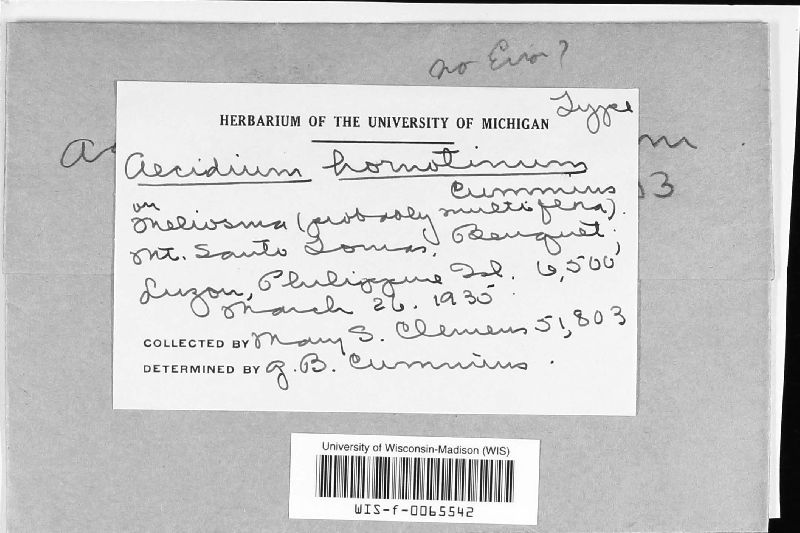 no Error?
Type
HERBARIUM OF THE UNIVERSITY OF MICHIGAN
Aecidium hornotinum
Cummins
on
Meliosma (probably multiflora).
Mt. Santo Tomas, Benguet,
Luzon, Philippine Isl. 6,500'
March 26. 1935
COLLECTED BY Mary S. Clemens 51,803
DETERMINED BY G. B. Cummins.
University of Wisconsin-Madison (WIS)
WIS-f-0065542